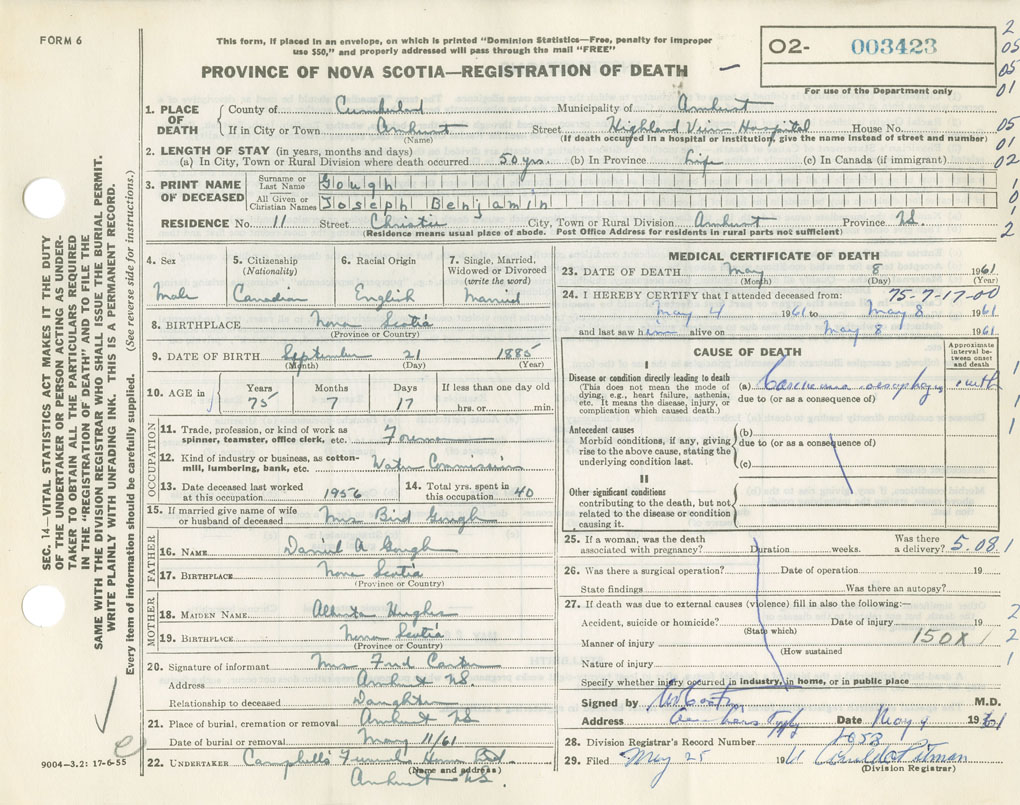 FORM 6
This form, if placed in an envelope, on which is printed "Dominion Statistics—Free, penalty for improper
use $50," and properly addressed will pass through the mail "FREE"
PROVINCE OF NOVA SCOTIA—REGISTRATION OF DEATH
O2- 003423
For use of the Department only
2
05
05
01
05
01
02
1
0
1
2
1. PLACE OF DEATH
County of Cumberland Municipality of Amherst
If in City or Town Amherst Street Highland View Hospital House No.
(Name) (If death occurred in a hospital or institution, give the name instead of street and number)
2. LENGTH OF STAY (in years, months and days)
(a) In City, Town or Rural Division where death occurred 50 yrs. (b) In Province Life (c) In Canada (if immigrant)
3. PRINT NAME OF DECEASED
Surname or Last Name Gough
All Given or Christian Names Joseph Benjamin
RESIDENCE No. 11 Street Christie City, Town or Rural Division Amherst Province NS.
(Residence means usual place of abode. Post Office Address for residents in rural parts not sufficient)
4. Sex
Male
5. Citizenship
(Nationality)
Canadian
6. Racial Origin
English
7. Single, Married, Widowed or Divorced
(write the word)
Married
8. BIRTHPLACE Nova Scotia
(Province or Country)
9. DATE OF BIRTH September 21 1885
(Month) (Day) (Year)
10. AGE in
Years Months Days If less than one day old
75 7 17 hrs. or min.
OCCUPATION
11. Trade, profession or kind of work as
spinner, teamster, office clerk, etc. Foreman
12. Kind of industry or business, as cotton-
mill, lumbering, bank, etc. Water Commission
13. Date deceased last worked
at this occupation 1956
14. Total yrs. spent in
this occupation 40
15. If married give name of wife
or husband of deceased Mrs Bird Gough
FATHER
16. NAME Daniel A Gough
17. BIRTHPLACE Nova Scotia
(Province or Country)
MOTHER
18. MAIDEN NAME Alberta Hughes
19. BIRTHPLACE Nova Scotia
(Province or Country)
20. Signature of informant Mrs Fred Carter
Address Amherst NS.
Relationship to deceased Daughter
21. Place of burial, cremation or removal Amherst NS
Date of burial or removal May 11/61
22. UNDERTAKER Campbell's Funeral Home
(Name and address)
Amherst NS.
MEDICAL CERTIFICATE OF DEATH
23. DATE OF DEATH May 8 1961
(Month) (Day)
24. I HEREBY CERTIFY that I attended deceased from: 75-7-17-00
May 4 1961 to May 8 1961
and last saw him alive on May 8 1961
CAUSE OF DEATH
Approximate interval between onset and death
I
Disease or condition directly leading to death
(This does not mean the mode of
dying, e.g., heart failure, asthenia,
etc. It means the disease, injury, or
complication which caused death.)
(a) Carcinoma oesophagus
due to (or as a consequence of)
Antecedent causes
Morbid conditions, if any, giving
rise to the above cause, stating the
underlying condition last.
(b)
due to (or as a consequence of)
(c)
II
Other significant conditions
contributing to the death, but not
related to the disease or condition
causing it.
25. If a woman, was the death
associated with pregnancy? Duration weeks. Was there
a delivery? 5.081
26. Was there a surgical operation? Date of operation 19
State findings Was there an autopsy?
27. If death was due to external causes (violence) fill in also the following:—
Accident, suicide or homicide? Date of injury 19
(State which)
Manner of injury 150X
(How sustained
Nature of injury
Specify whether injury occurred in industry, in home, or in public place
Signed by M.D.
Address Date May 9 1961
28. Division Registrar's Record Number
29. Filed May 25
(Division Registrar)
SEC. 14—VITAL STATISTICS ACT MAKES IT THE DUTY
OF THE UNDERTAKER OR PERSON ACTING AS UNDER-
TAKER TO OBTAIN ALL THE PARTICULARS REQUIRED
IN THE "REGISTRATION OF DEATH" AND TO FILE THE
SAME WITH THE DIVISION REGISTRAR WHO SHALL ISSUE THE BURIAL PERMIT.
WRITE PLAINLY WITH UNFADING INK. THIS IS A PERMANENT RECORD.
Every item of information should be carefully supplied. (See reverse side for instructions.)
9004-3.2: 17-6-55